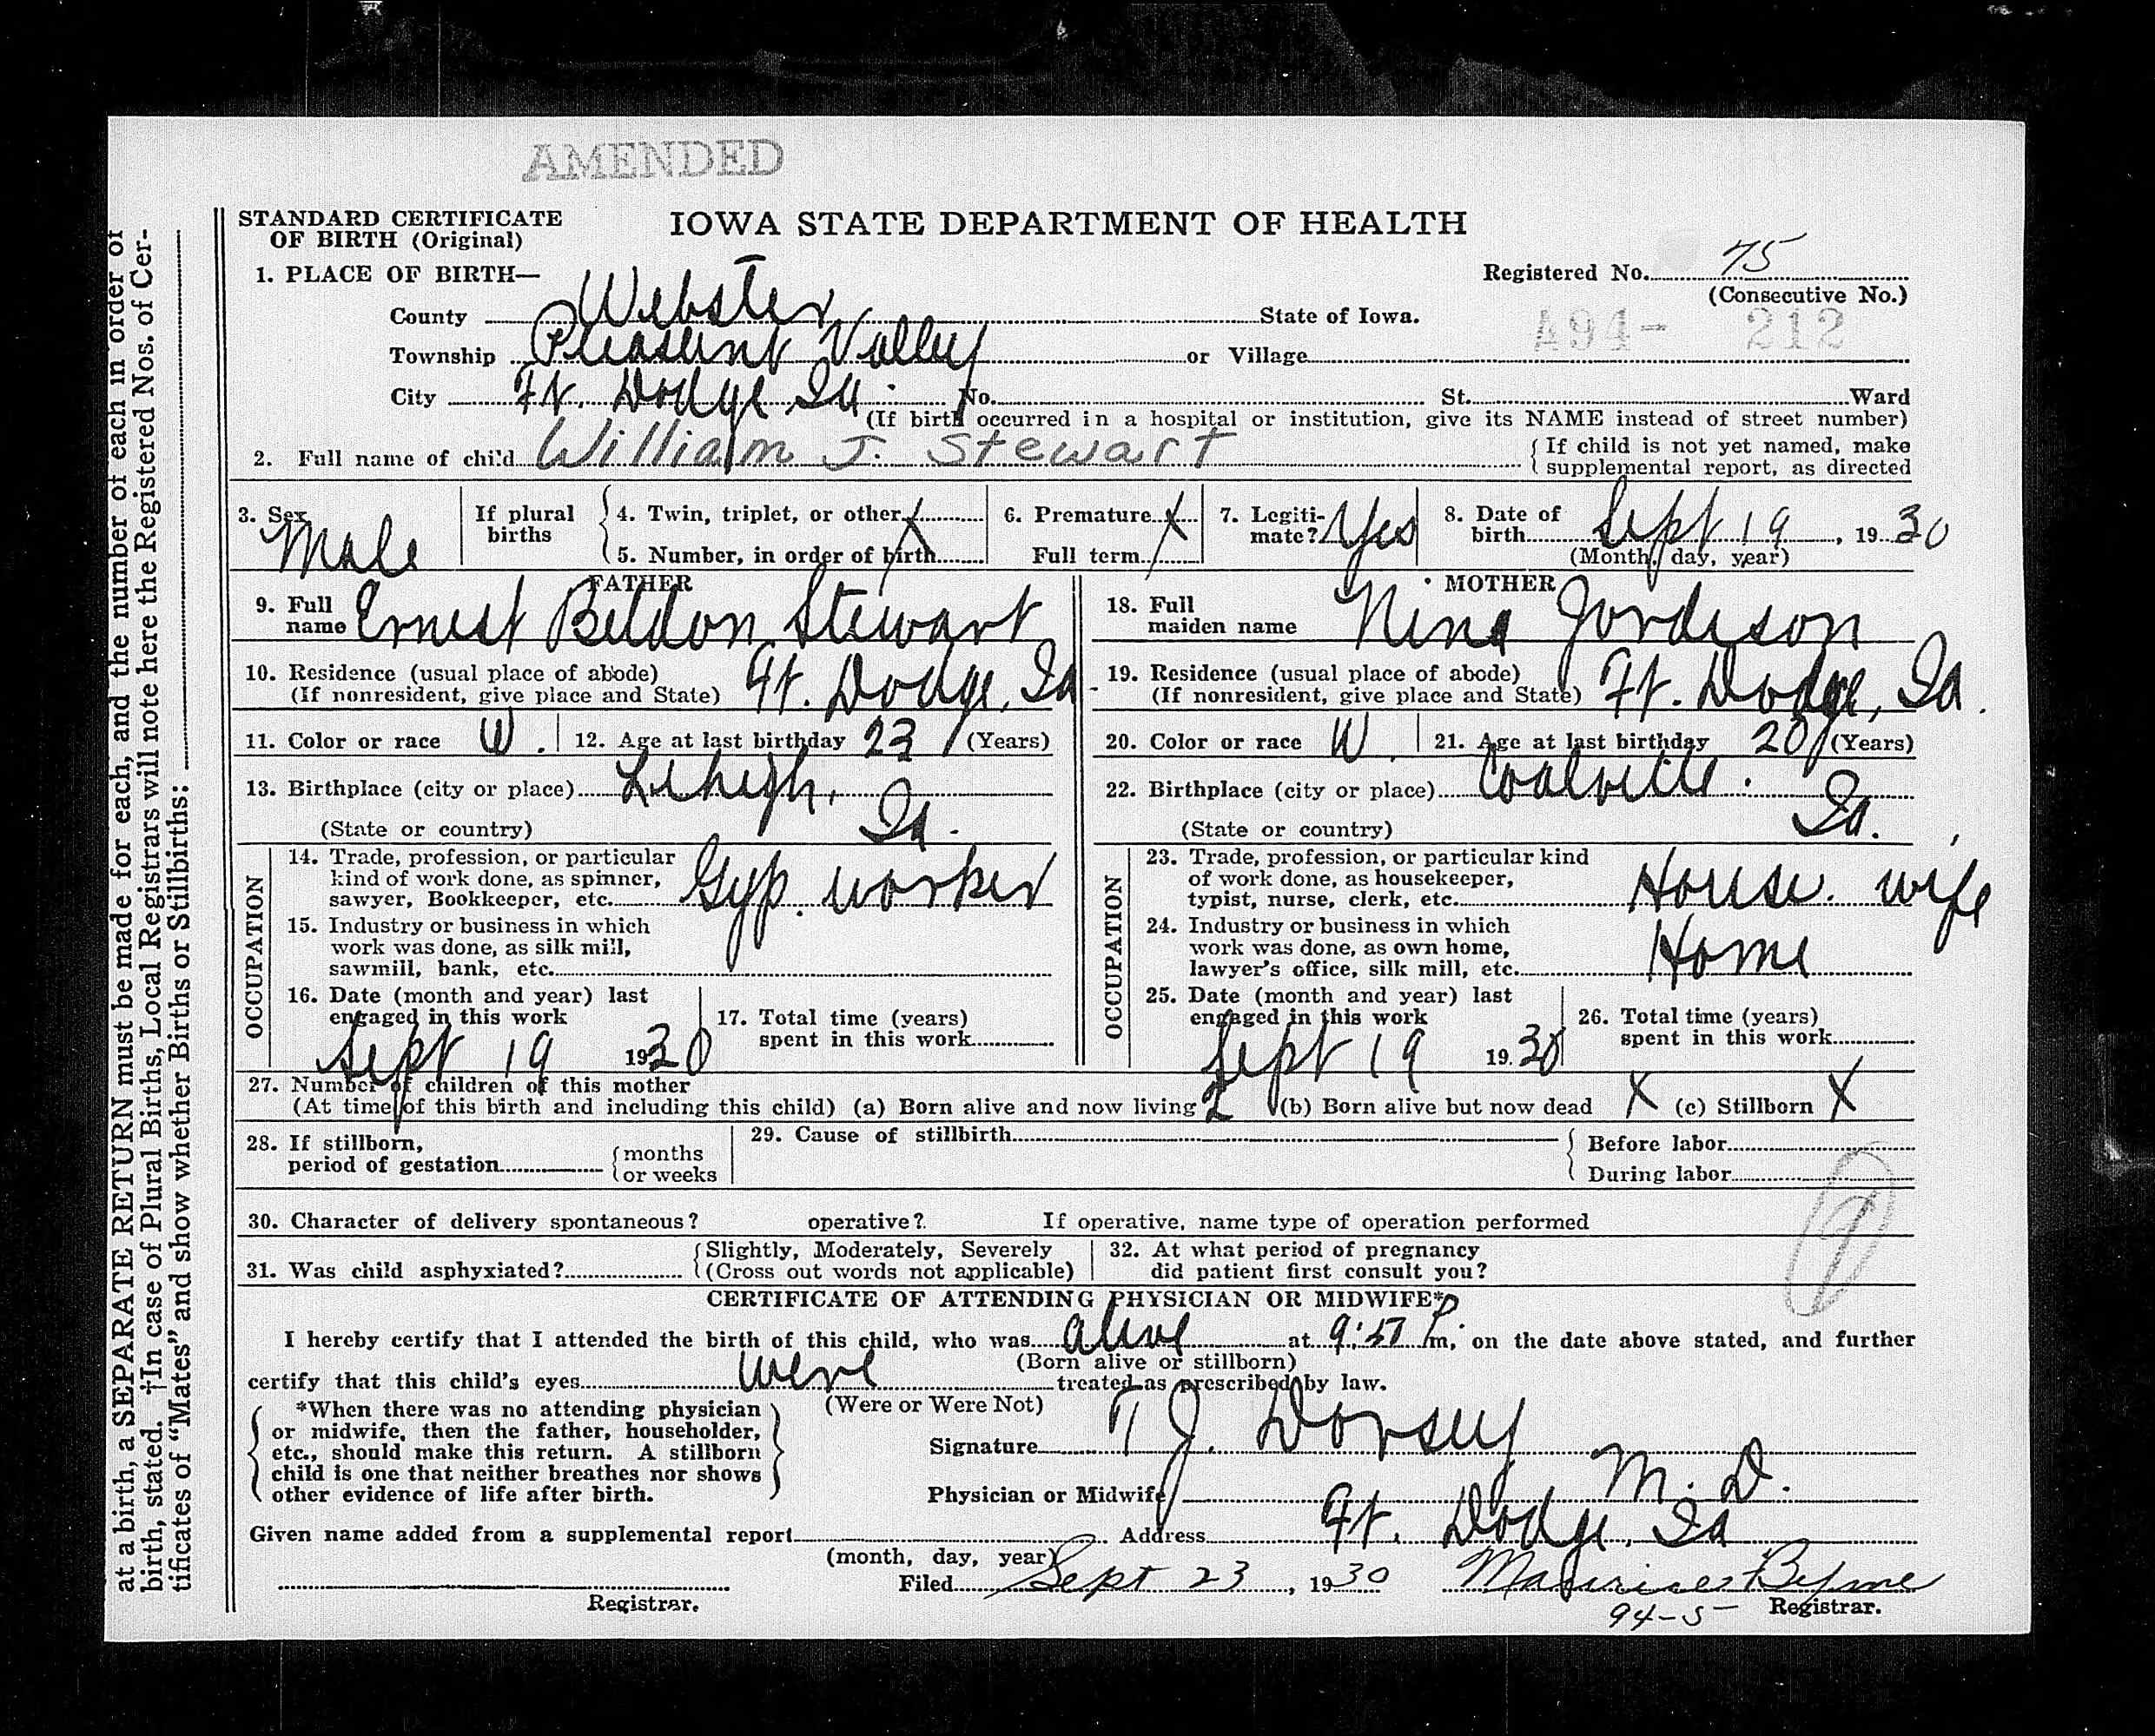 AMENDED
STANDARD CERTIFICATE
OF BIRTH (Original)
IOWA STATE DEPARTMENT OF HEALTH
Registered No. 75
(Consecutive No.)
1. PLACE OF BIRTH—
County Webster State of Iowa.
A94- 212
Township Pleasant Valley or Village
City Ft. Dodge Ia. No. St. Ward
(If birth occurred in a hospital or institution, give its NAME instead of street number)
2. Full name of child William J. Stewart { If child is not yet named, make
supplemental report, as directed
3. Sex Male
If plural births { 4. Twin, triplet, or other X
5. Number, in order of birth
6. Premature X
Full term
7. Legitimate? Yes
8. Date of birth Sept 19, 1930
(Month, day, year)
FATHER
9. Full name Ernest Beldon Stewart
10. Residence (usual place of abode)
(If nonresident, give place and State) Ft. Dodge, Ia
11. Color or race W. 12. Age at last birthday 23 (Years)
13. Birthplace (city or place) Lehigh,
(State or country) Ia.
OCCUPATION
14. Trade, profession, or particular
kind of work done, as spinner,
sawyer, Bookkeeper, etc. Gyp. worker
15. Industry or business in which
work was done, as silk mill,
sawmill, bank, etc.
16. Date (month and year) last
engaged in this work
Sept 19 1930
17. Total time (years)
spent in this work
MOTHER
18. Full
maiden name Nina Jordison
19. Residence (usual place of abode)
(If nonresident, give place and State) Ft. Dodge, Ia.
20. Color or race W. 21. Age at last birthday 20 (Years)
22. Birthplace (city or place) Coalville.
(State or country) Ia.
OCCUPATION
23. Trade, profession, or particular kind
of work done, as housekeeper,
typist, nurse, clerk, etc. House. wife
24. Industry or business in which
work was done, as own home,
lawyer's office, silk mill, etc. Home
25. Date (month and year) last
engaged in this work
Sept 19 1930
26. Total time (years)
spent in this work
27. Number of children of this mother
(At time of this birth and including this child) (a) Born alive and now living 2 (b) Born alive but now dead X (c) Stillborn X
28. If stillborn,
period of gestation { months
or weeks
29. Cause of stillbirth { Before labor
During labor
30. Character of delivery spontaneous? operative? If operative, name type of operation performed
31. Was child asphyxiated? { Slightly, Moderately, Severely
(Cross out words not applicable)
32. At what period of pregnancy
did patient first consult you?
CERTIFICATE OF ATTENDING PHYSICIAN OR MIDWIFE*
I hereby certify that I attended the birth of this child, who was alive at 9:57 P m. on the date above stated, and further
(Born alive or stillborn)
certify that this child's eyes were treated as prescribed by law.
(Were or Were Not)
*When there was no attending physician
or midwife, then the father, householder,
etc., should make this return. A stillborn
child is one that neither breathes nor shows
other evidence of life after birth.
Signature T J. Dorsey
Physician or Midwife M. D.
Given name added from a supplemental report
(month, day, year)
Address Ft. Dodge, Ia
Registrar.
Filed Sept 23, 1930 Maurice Byrne
94-5 Registrar.
at a birth, a SEPARATE RETURN must be made for each, and the number of each in order of
birth, stated. †In case of Plural Births, Local Registrars will note here the Registered Nos. of Cer-
tificates of "Mates" and show whether Births or Stillbirths: